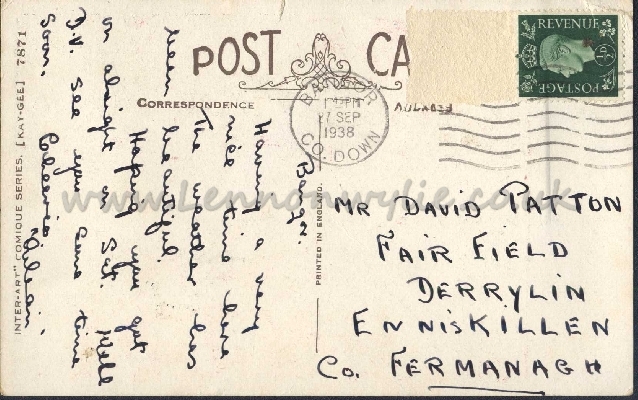 POST CA
CORRESPONDENCE
REVENUE
½D
POSTAGE
BANGOR
PM
27 SEP
1938
CO. DOWN
Bangor.
Having a very
nice time here
The weather has
been
beautiful.
Hoping you get
on alright on Sat.
D.V. See you some time
Soon.
Cheerio
MR DAVID PATTON
FAIR FIELD
DERRYLIN
ENNISKILLEN
CO. FERMANAGH
PRINTED IN ENGLAND.
INTER-ART" COMIQUE SERIES. [KAY-GEE] 7871
www.Lennonwylie.co.uk